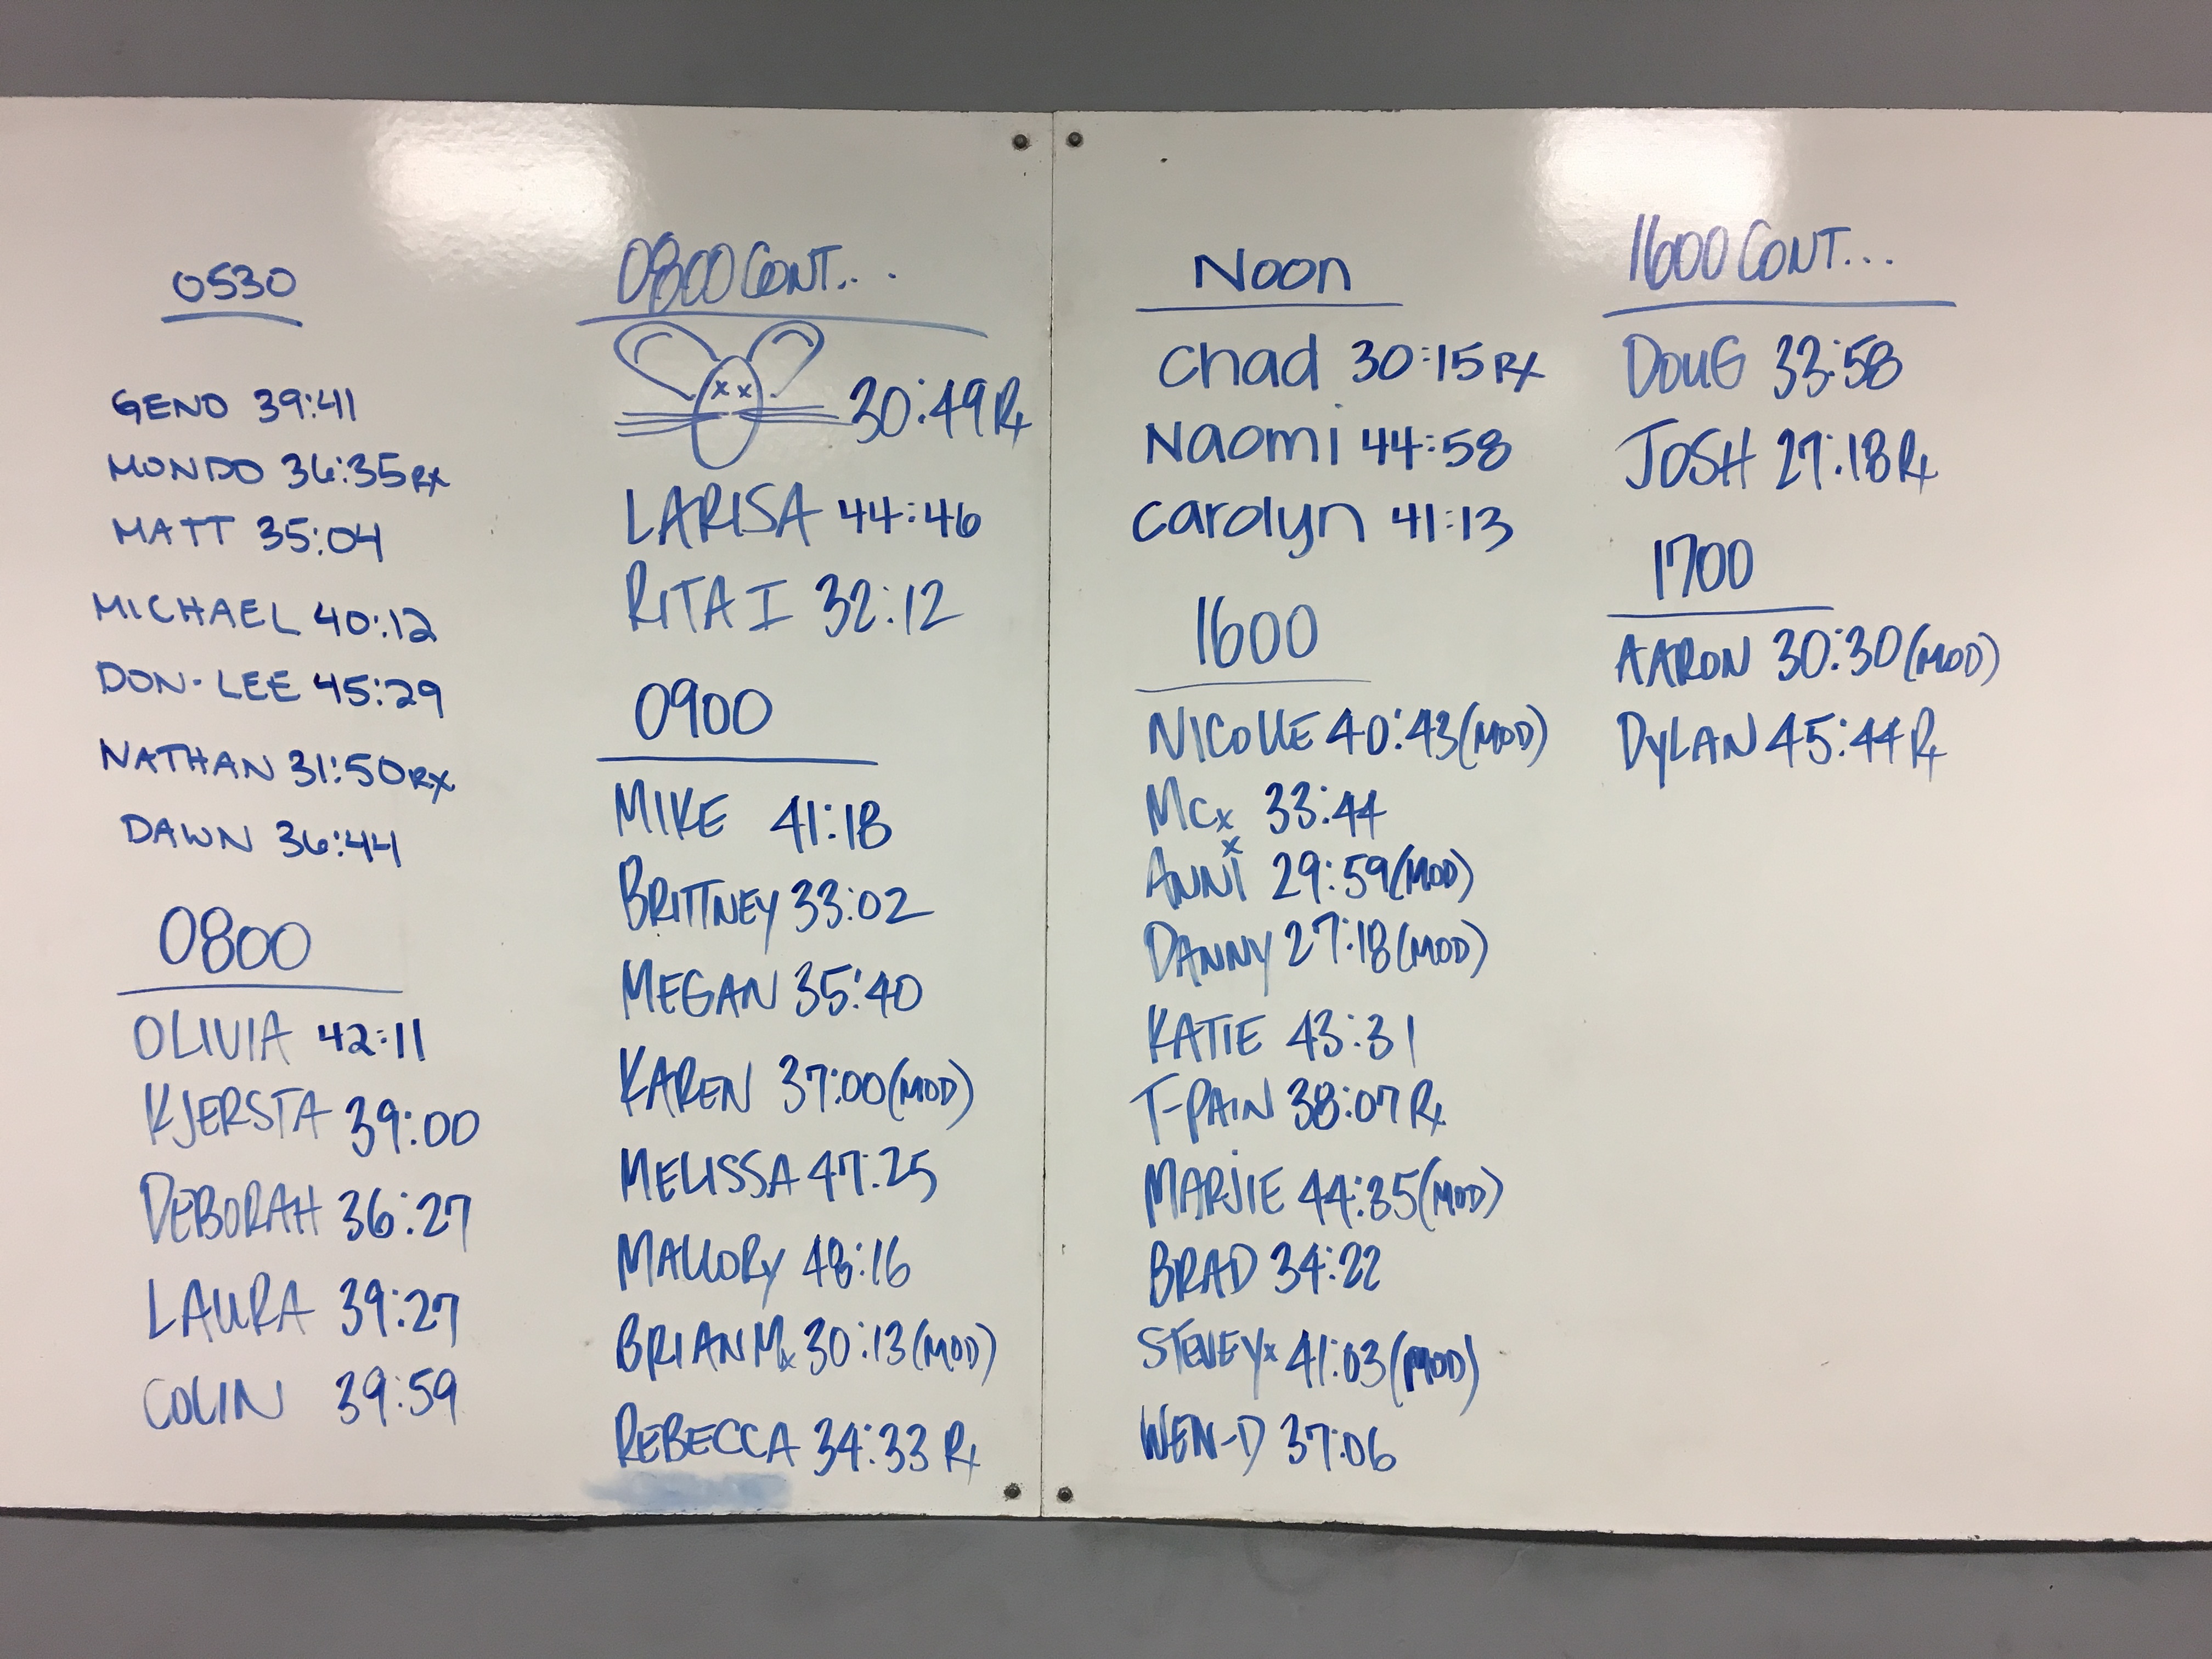 0530
GENO 39:41
MONDO 36:35 RX
MATT 35:04
MICHAEL 40:12
DON-LEE 45:29
NATHAN 31:50 RX
DAWN 36:44
0800
OLIVIA 42:11
KJERSTA 39:00
DEBORAH 36:27
LAURA 39:27
COLIN 39:59
0800 CONT...
30:49 Rx
LARISA 44:46
RITA I 32:12
0900
MIKE 41:18
BRITTNEY 33:02
MEGAN 35:40
KAREN 37:00 (MOD)
MELISSA 47:25
MALLORY 48:16
BRIAN Mx 30:13 (MOD)
REBECCA 34:33 Rx
Noon
Chad 30:15 Rx
Naomi 44:58
Carolyn 41:13
1600
NICOLLE 40:43 (MOD)
MCx 33:44
ANNI x 29:59 (MOD)
DANNY 27:18 (MOD)
KATIE 43:31
T-PAIN 38:07 Rx
MARJIE 44:35 (MOD)
BRAD 34:22
STEVEYx 41:03 (MOD)
WEN-D 37:06
1600 CONT...
DOUG 33:58
JOSH 27:18 Rx
1700
AARON 30:30 (MOD)
DYLAN 45:44 Rx